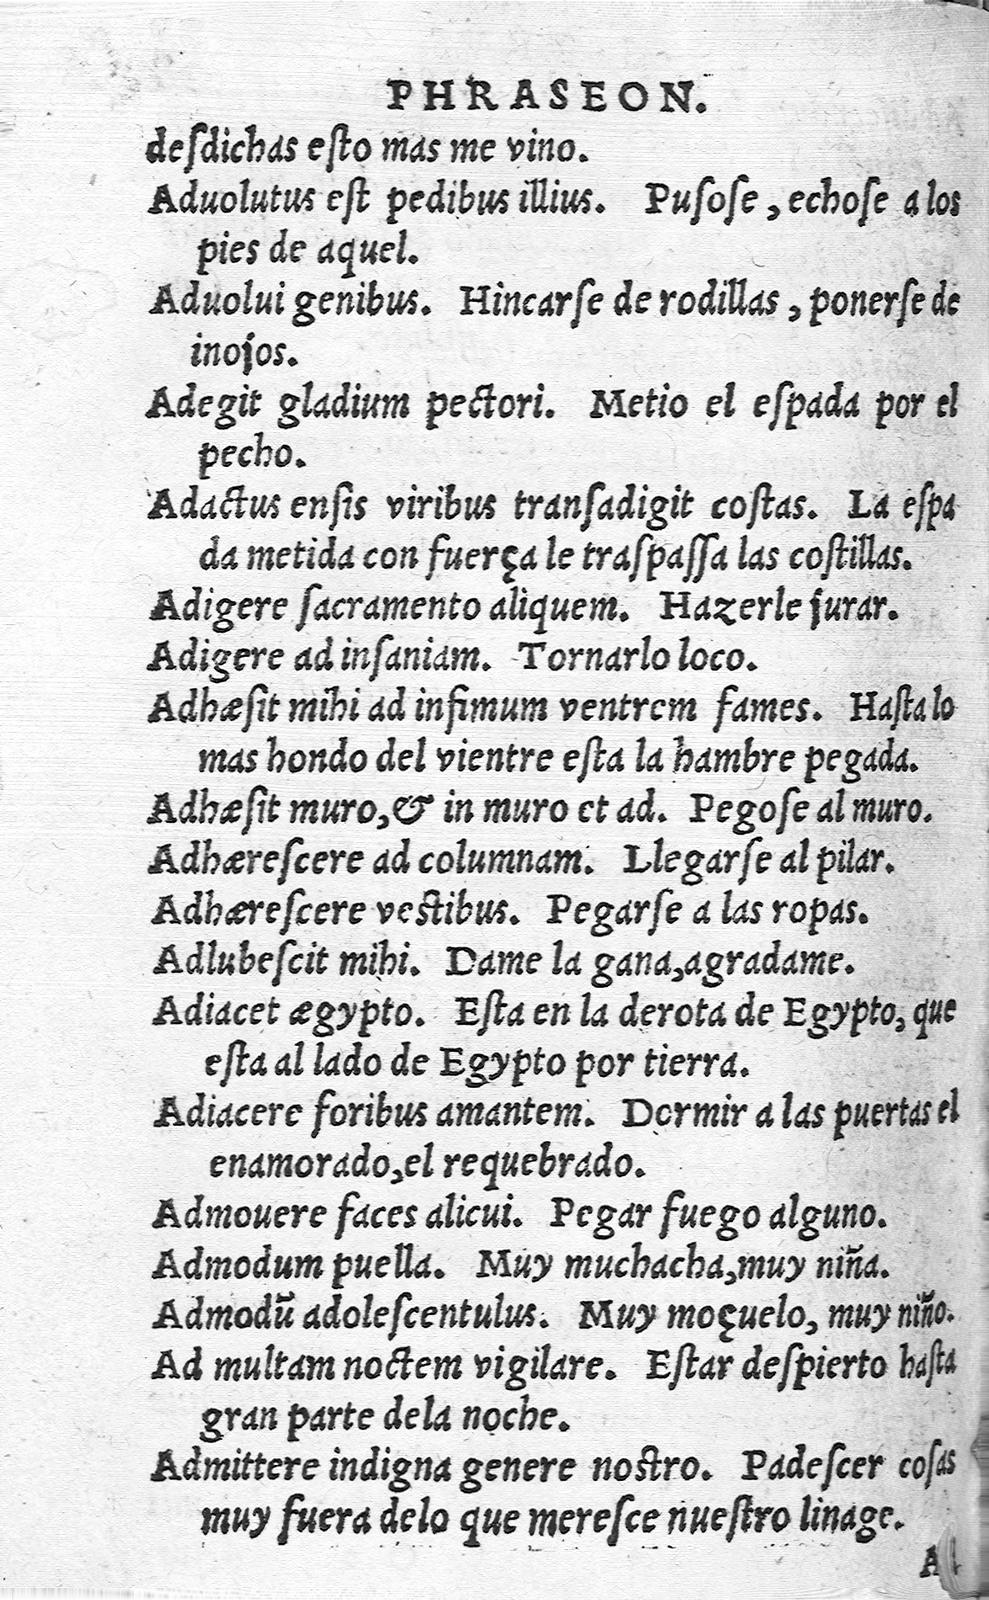 PHRASEON.
deſdichas eſto mas me vino.
Aduolutus eſt pedibus illius. Puſoſe, echoſe a los
pies de aquel.
Aduolui genibus. Hincarſe de rodillas, ponerſe de
inojos.
Adegit gladium pectori. Metio el eſpada por el
pecho.
Adactus enſis viribus tranſadigit coſtas. La eſpa
da metida con fuerça le traſpaſſa las coſtillas.
Adigere ſacramento aliquem. Hazerle jurar.
Adigere ad inſaniam. Tornarlo loco.
Adhæſit mihi ad infimum ventrem fames. Haſta lo
mas hondo del vientre eſta la hambre pegada.
Adhæſit muro, & in muro et ad. Pegoſe al muro.
Adhæreſcere ad columnam. Llegarſe al pilar.
Adhæreſcere veſtibus. Pegarſe a las ropas.
Adlubeſcit mihi. Dame la gana, agradame.
Adiacet ægypto. Eſta en la derota de Egypto, que
eſta al lado de Egypto por tierra.
Adiacere foribus amantem. Dormir a las puertas el
enamorado, el requebrado.
Admouere faces alicui. Pegar fuego alguno.
Admodum puella. Muy muchacha, muy niña.
Admodũ adoleſcentulus. Muy moçuelo, muy niño.
Ad multam noctem vigilare. Eſtar deſpierto haſta
gran parte dela noche.
Admittere indigna genere noſtro. Padeſcer coſas
muy fuera delo que mereſce nueſtro linage.